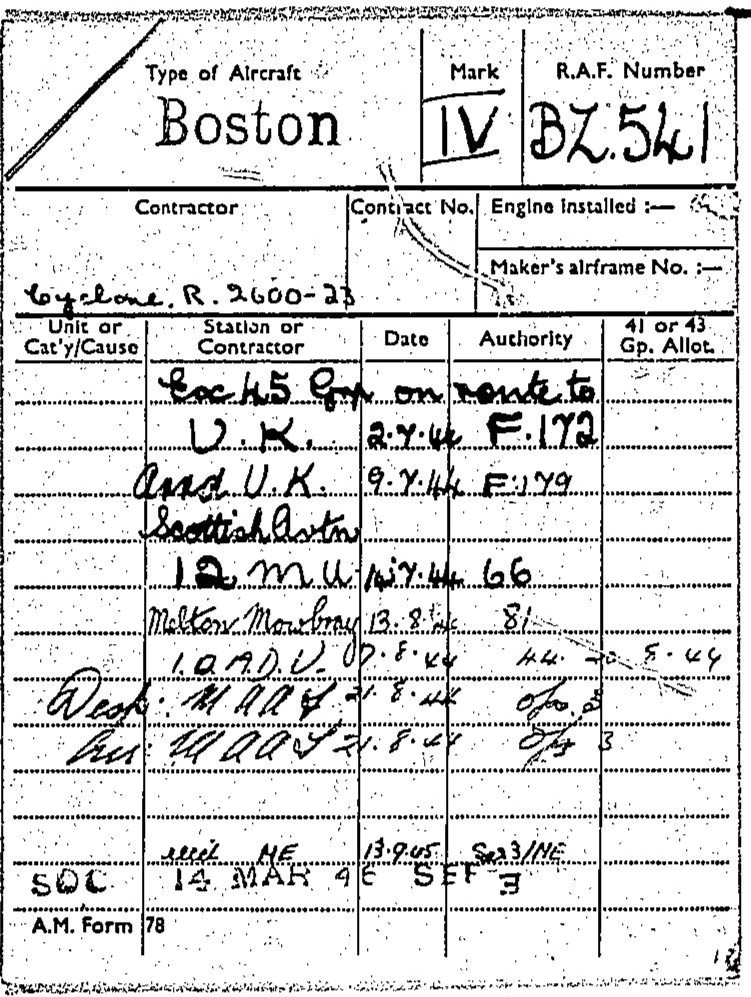 Type of Aircraft Mark R.A.F. Number
Boston IV BZ.541
Contractor Contract No. Engine installed :—
Maker's airframe No. :—
Cyclone. R. 2600-23
Unit or Cat'y/Cause Station or Contractor Date Authority 41 or 43 Gp. Allot.
Exc 45 Grp on route to
U.K. 2.7.44 F.172
Arrd U.K. 9.7.44 F.179
Scottish Avtn
12 M U 7.44 66
Melton Mowbray 13.8.44 81
1.O.A.D.U. 7.8.44 44. 8.44
Desp: M A A F 21.8.44 Ops. 3
Arr: M A A F 21.8.44 Ops 3
ME 13.9.45 Ser3/ME
SOC 14 MAR 46 SEF 3
A.M. Form 78